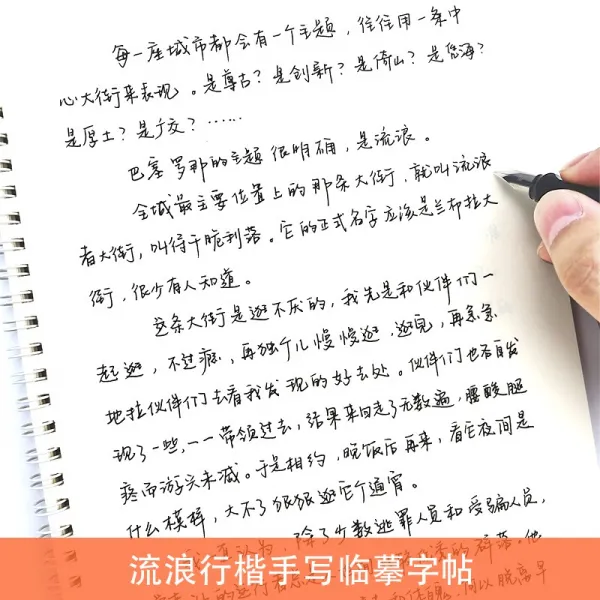 每一座城市都会有一个主题，往往用一条中
心大街来表现。是尊古？是创新？是倚山？是凭海？
是厚土？是广交？……
巴塞罗那的主题很明确，是流浪。
全城最主要位置上的那条大街，就叫流浪
者大街，叫得干脆利落。它的正式名字应该是兰布拉大
街，很少有人知道。
这条大街是逛不厌的，我先是和伙伴们一
起逛，不过瘾，再独个儿慢慢逛，逛完，再急急
地拉伙伴们去看我发现的好去处。伙伴们也各自发
现了一些，一一带领过去，结果来回走了无数遍，腰酸腿
疼而游兴未减。于是相约，晚饭后再来，看它夜间是
什么模样，大不了狠狠逛它个通宵。
认为，除了少数逃罪人员和受骗人员，
流浪行楷手写临摹字帖